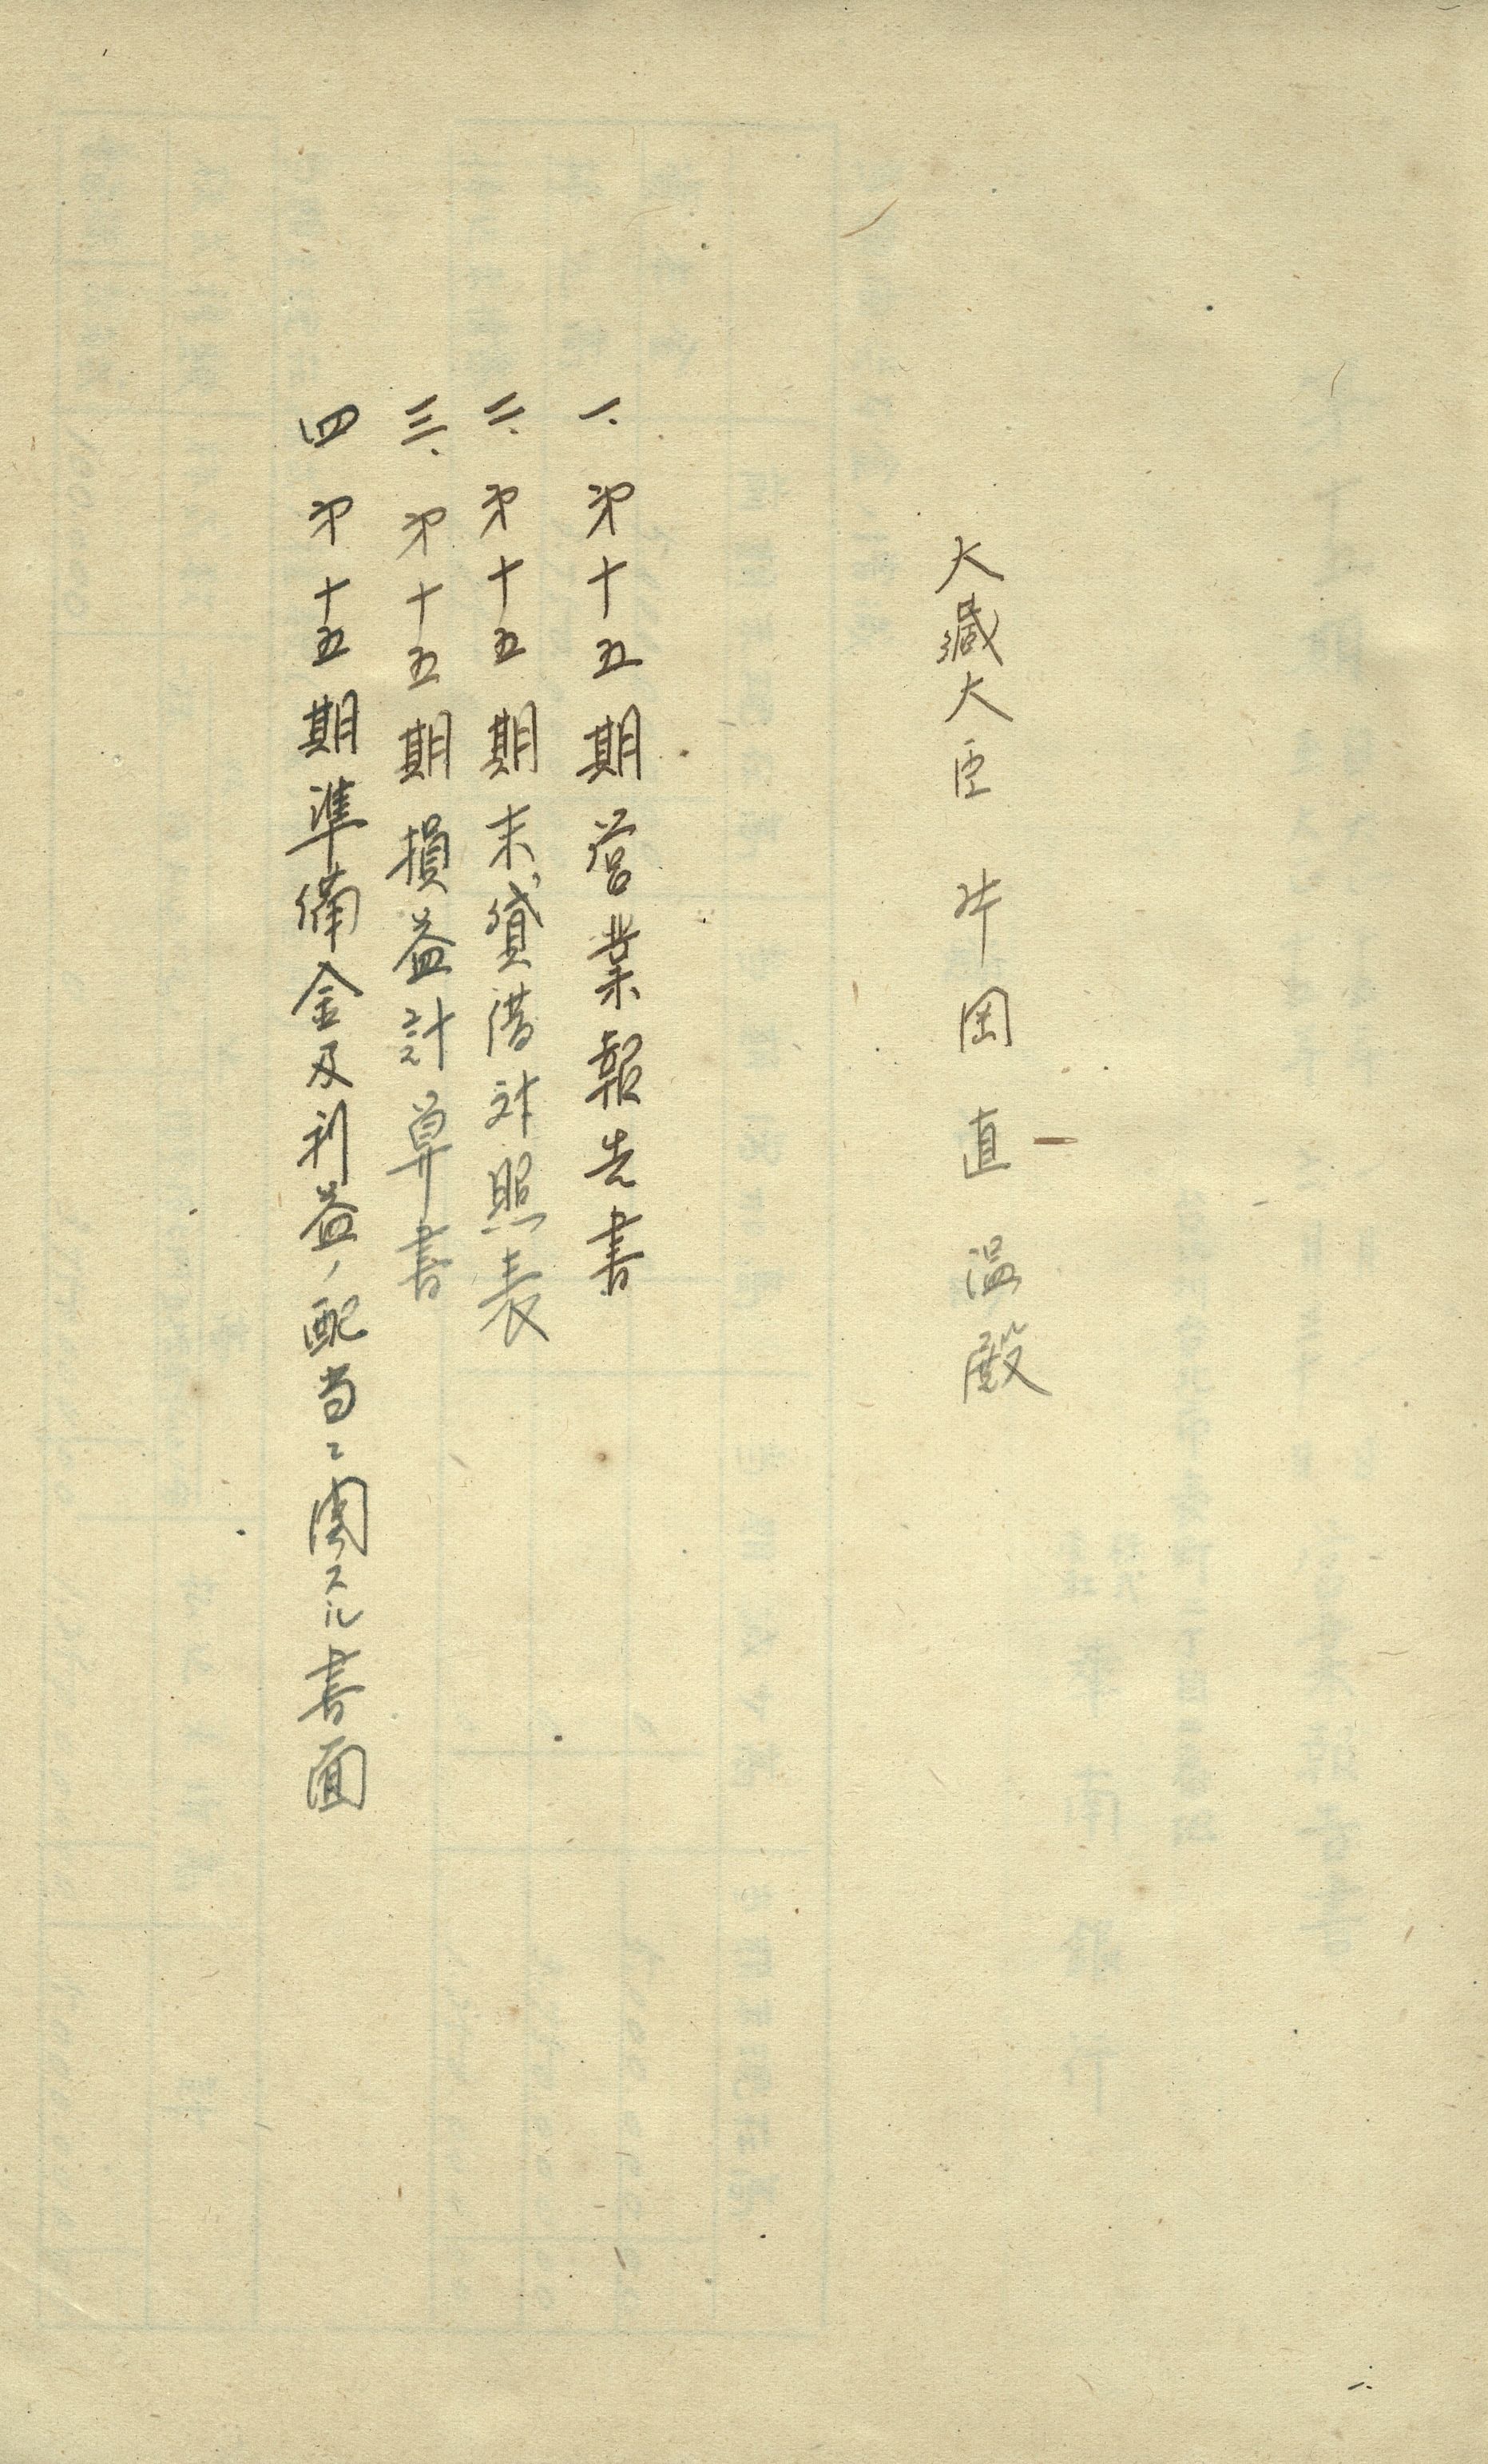 大藏大臣 片岡直温殿
一、第十五期営業報告書
二、第十五期末貸借対照表
三、第十五期損益計算書
四 第十五期準備金及利益ノ配当ニ関スル書面